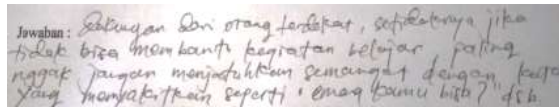 Jawaban : Dukungan dari orang terdekat, setidaknya jika
tidak bisa membantu kegiatan belajar paling
nggak jangan menjatuhkan semangat dengan kata
yang menyakitkan seperti "emag kamu bisa?" dsb.